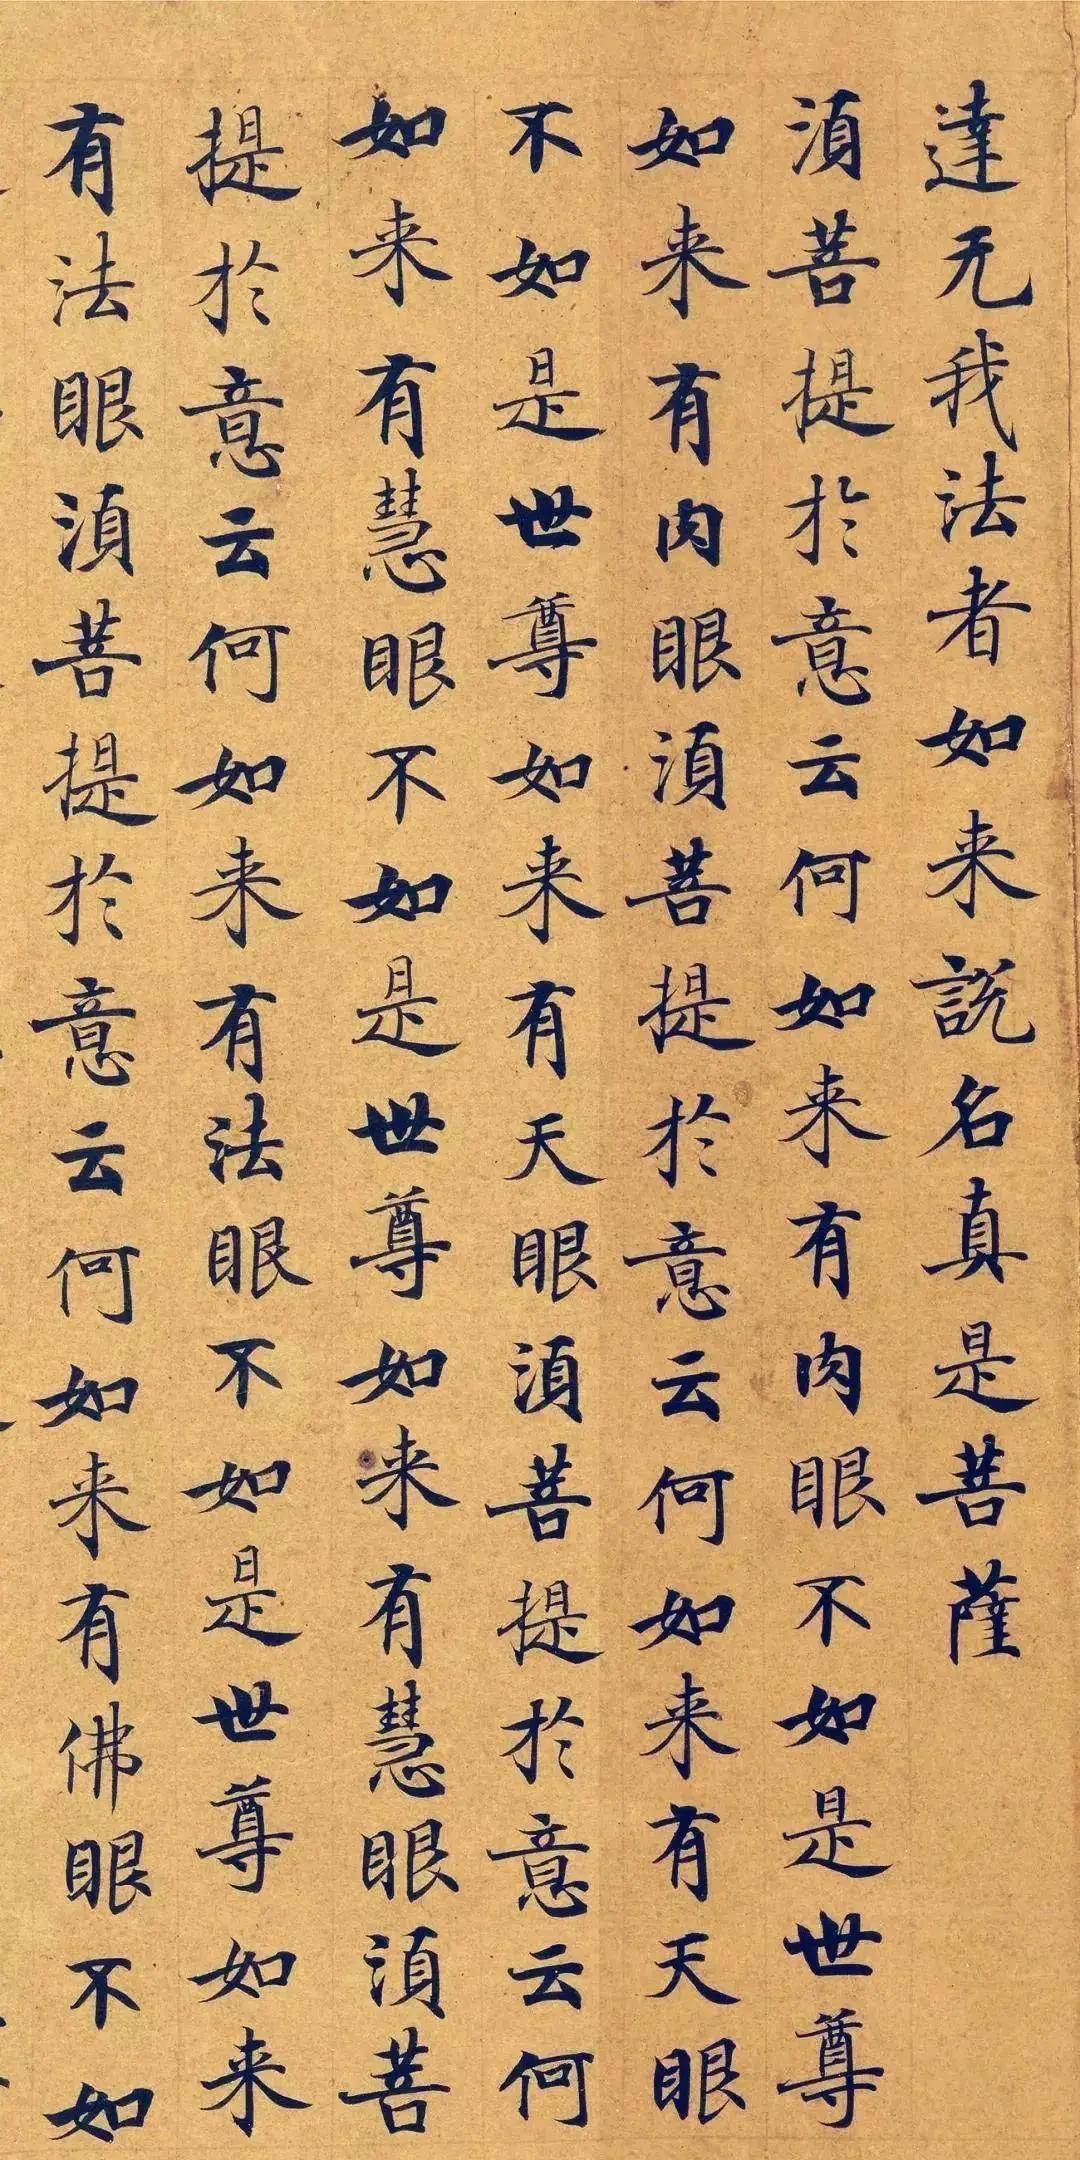 達无我法者如来説名真是菩薩
湏菩提於意云何如来有肉眼不如是世尊
如来有肉眼湏菩提於意云何如来有天眼
不如是世尊如来有天眼湏菩提於意云何
如来有慧眼不如是世尊如来有慧眼湏菩
提於意云何如来有法眼不如是世尊如来
有法眼湏菩提於意云何如来有佛眼不如